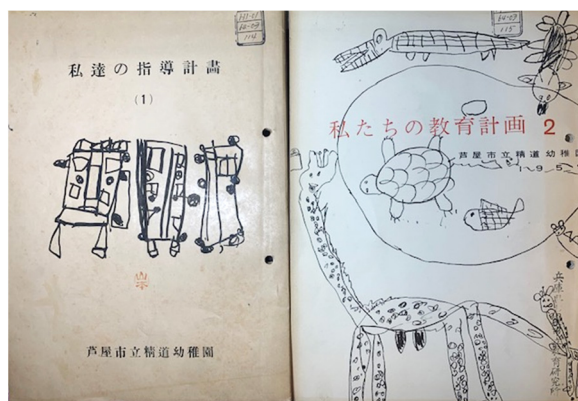 私達の指導計畫
(1)
芦屋市立精道幼稚園
114
私たちの教育計画 2
芦屋市立精道幼稚園
115